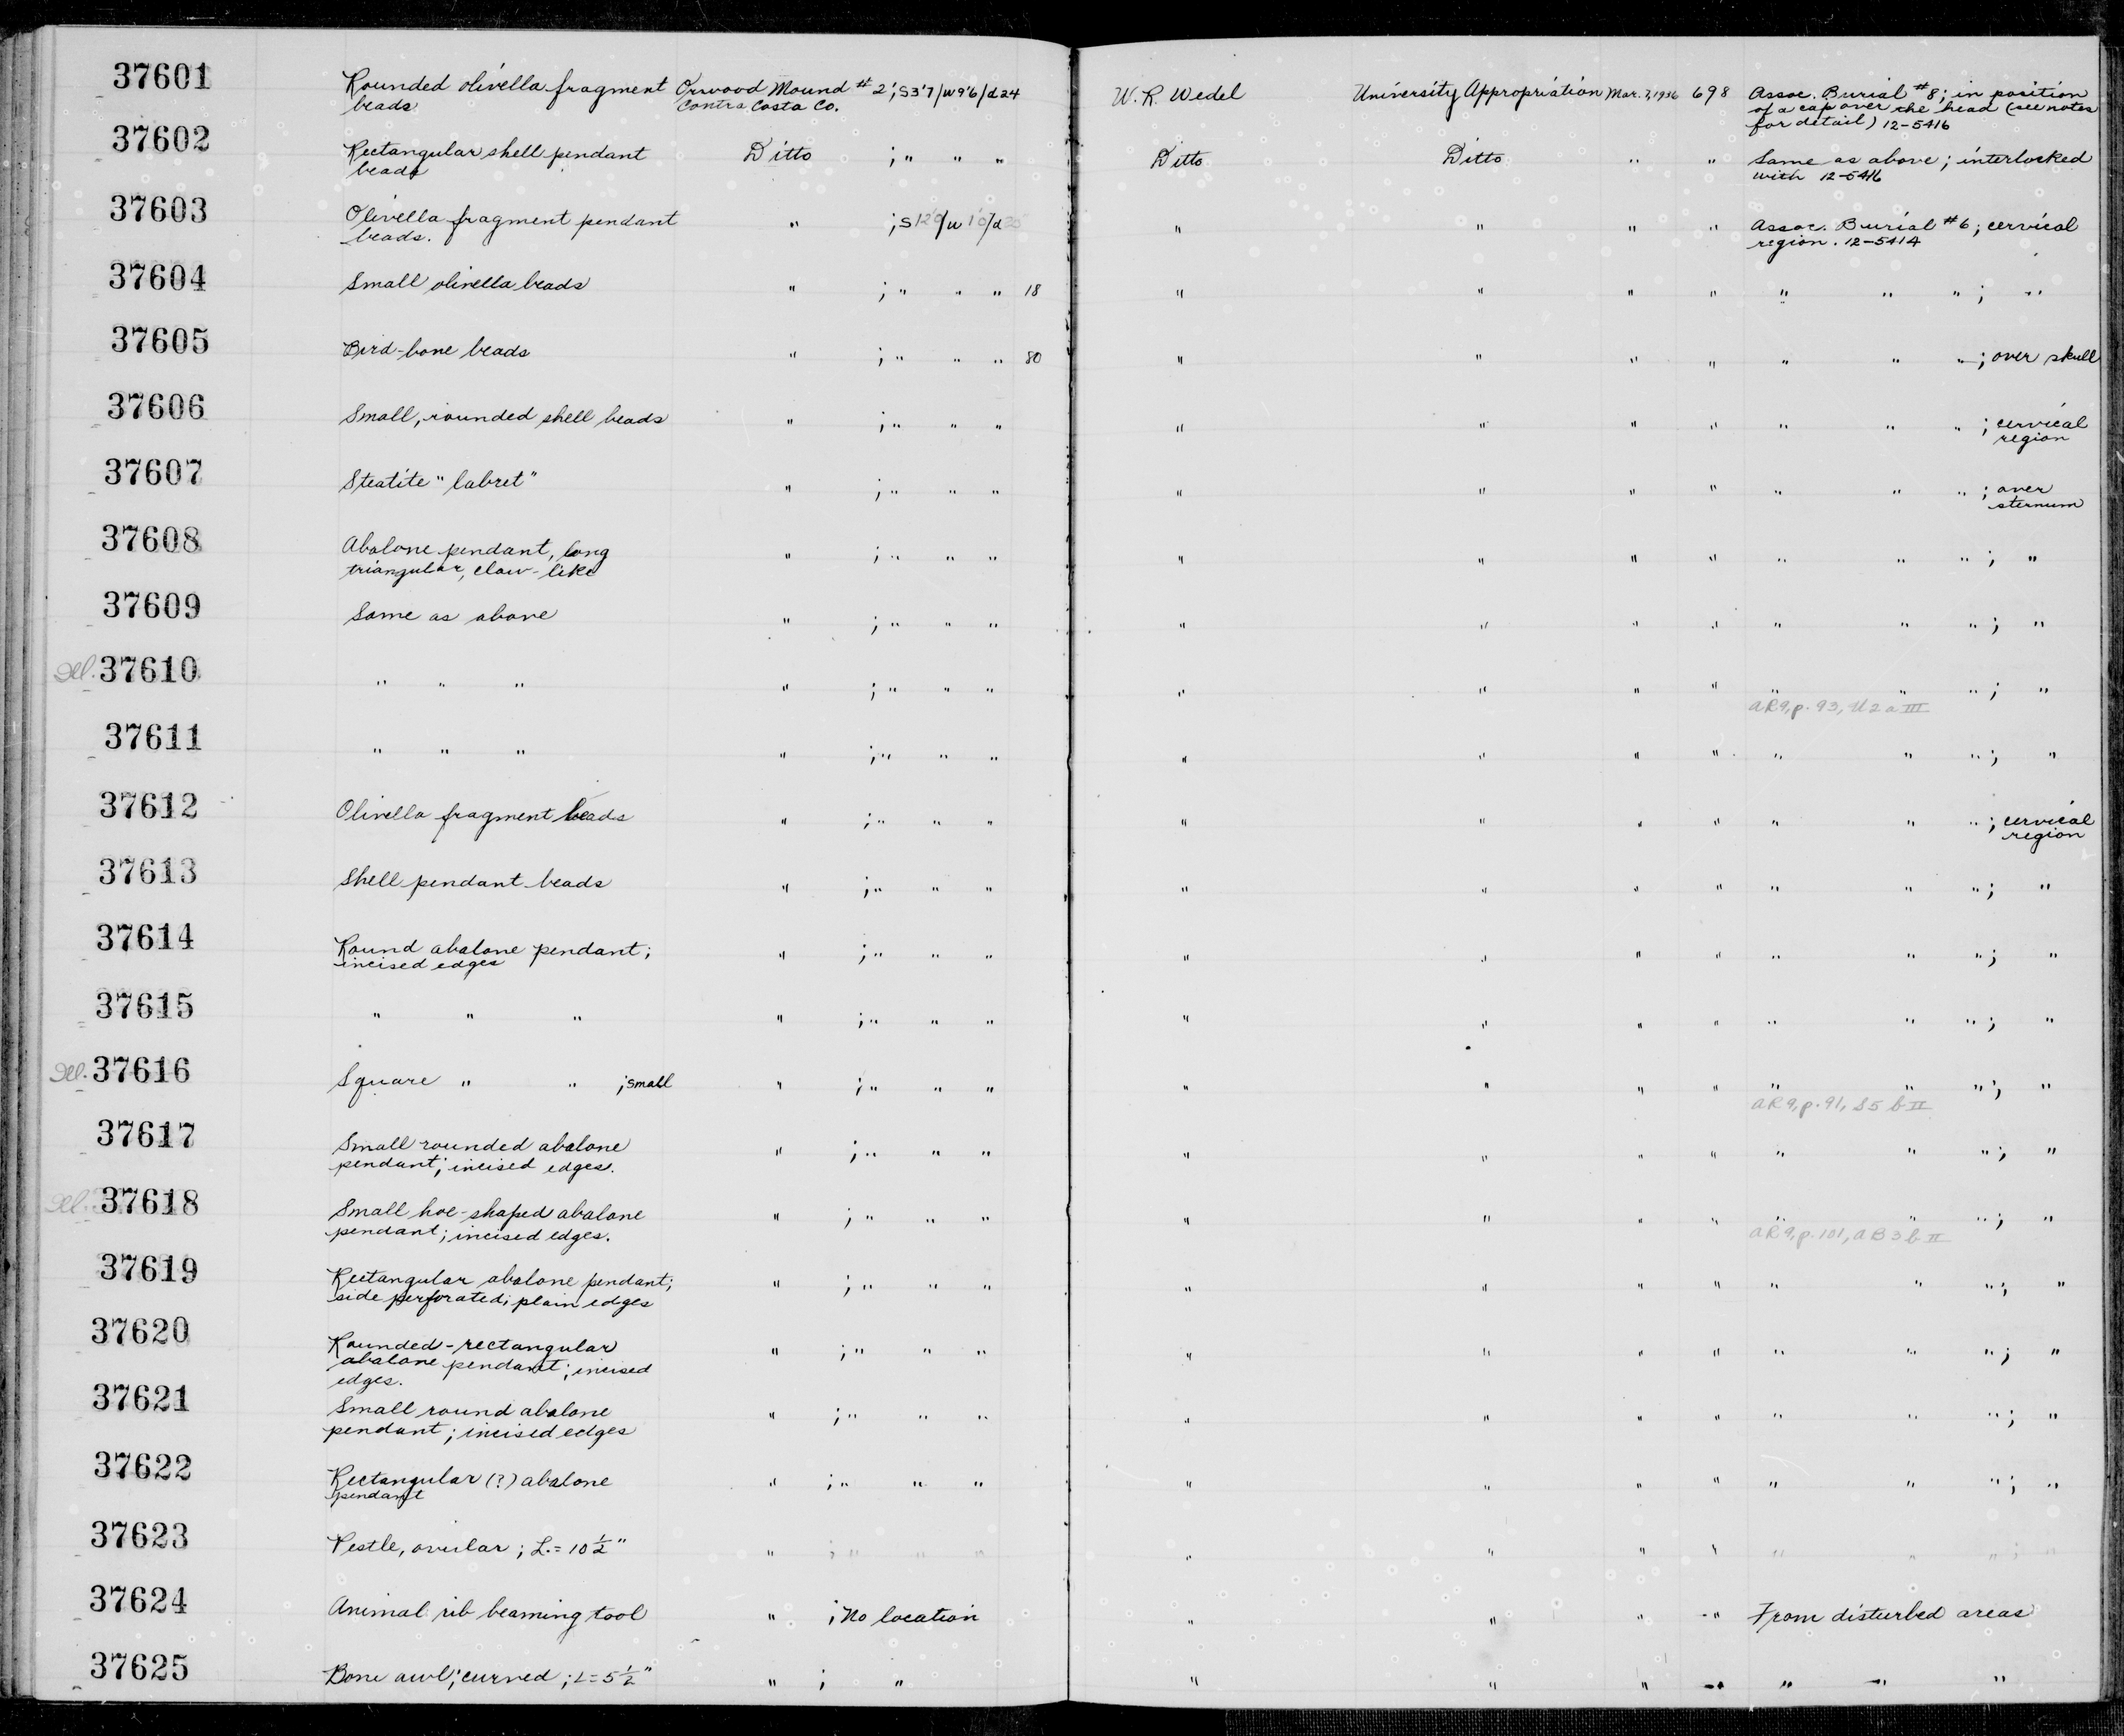 37601 Rounded olivella fragment Orwood Mound #2; S3'7/W9'6/d24 W. R. Wedel University Appropriation Mar. 7, 1936 698 Assoc. Burial #8; in position
beads Contra Costa Co. of a cap over the head (see notes
for detail) 12-5416
37602 Rectangular shell pendant Ditto ; " " " Ditto Ditto " " Same as above; interlocked
beads with 12-5416
37603 Olivella fragment pendant " ; S12'0/W 1'0/d " " " " Assoc. Burial #6; cervical
beads. region. 12-5414
37604 Small olivella beads " ; " " " 18 " " " " " " " ; "
37605 Bird-bone beads " ; " " " 80 " " " " " " " ; over skull
37606 Small, rounded shell beads " ; " " " " " " " " " " ; cervical
region
37607 Steatite "labret" " ; " " " " " " " " " " ; over
sternum
37608 Abalone pendant, long " ; " " " " " " " " " " ; "
triangular, claw-like
37609 Same as above " ; " " " " " " " " " " ; "
Del. 37610 " " " " ; " " " " " " " " " " ; "
AR9, p. 93, U2aIII
37611 " " " " ; " " " " " " " " " " ; "
37612 Olivella fragment beads " ; " " " " " " " " " " ; cervical
region
37613 Shell pendant beads " ; " " " " " " " " " " ; "
37614 Round abalone pendant; " ; " " " " " " " " " " ; "
incised edges
37615 " " " " ; " " " " " " " " " " ; "
Del. 37616 Square " " ; small " ; " " " " " " " " " " ; "
AR9, p. 91, S5bII
37617 Small rounded abalone " ; " " " " " " " " " " ; "
pendant; incised edges.
Del. 37618 Small hoe-shaped abalone " ; " " " " " " " " " " ; "
pendant; incised edges. AR9, p. 101, AB3bII
37619 Rectangular abalone pendant; " ; " " " " " " " " " " ; "
side perforated; plain edges
37620 Rounded-rectangular " ; " " " " " " " " " " ; "
abalone pendant; incised
edges.
37621 Small round abalone " ; " " " " " " " " " " ; "
pendant; incised edges
37622 Rectangular (?) abalone " ; " " " " " " " " " " ; "
pendant
37623 Pestle, ovular; L.= 10 1/2" " ; " " " " " " " " " " ; "
37624 Animal rib beaming tool " ; No location " " " " From disturbed areas
37625 Bone awl; curved; L=5 1/2" " ; " " " " " " " "